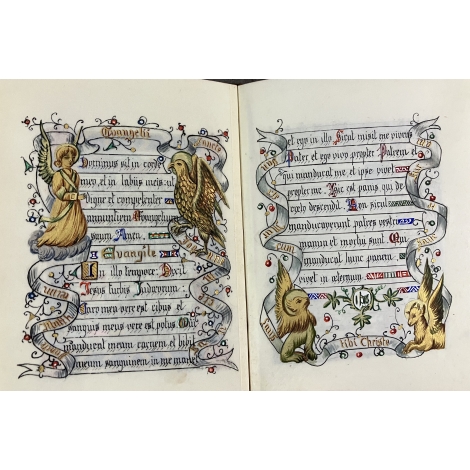 Evangelii
Dominus sit in corde
meo, et in labiis meis: ut
Digne et competenter
annuntiem Evangelium
suum. Amen.
Evangile
In illo tempore: Dixit
Jesus turbis Judæorum
Caro mea vere est cibus et
sanguis meus vere est potus. Qui
manducat meam carnem et bibit
meum sanguinem in me man
et ego in illo. Sicut misit me vivens
Pater, et ego vivo propter Patrem et
qui manducat me et ipse vivet
propter me. Hic est panis qui de
cœlo descendit. Non sicut
manducaverunt patres vestri
manna et mortui sunt. Qui
manducat hunc panem
vivet in æternum.
ihs
Laus tibi Christe